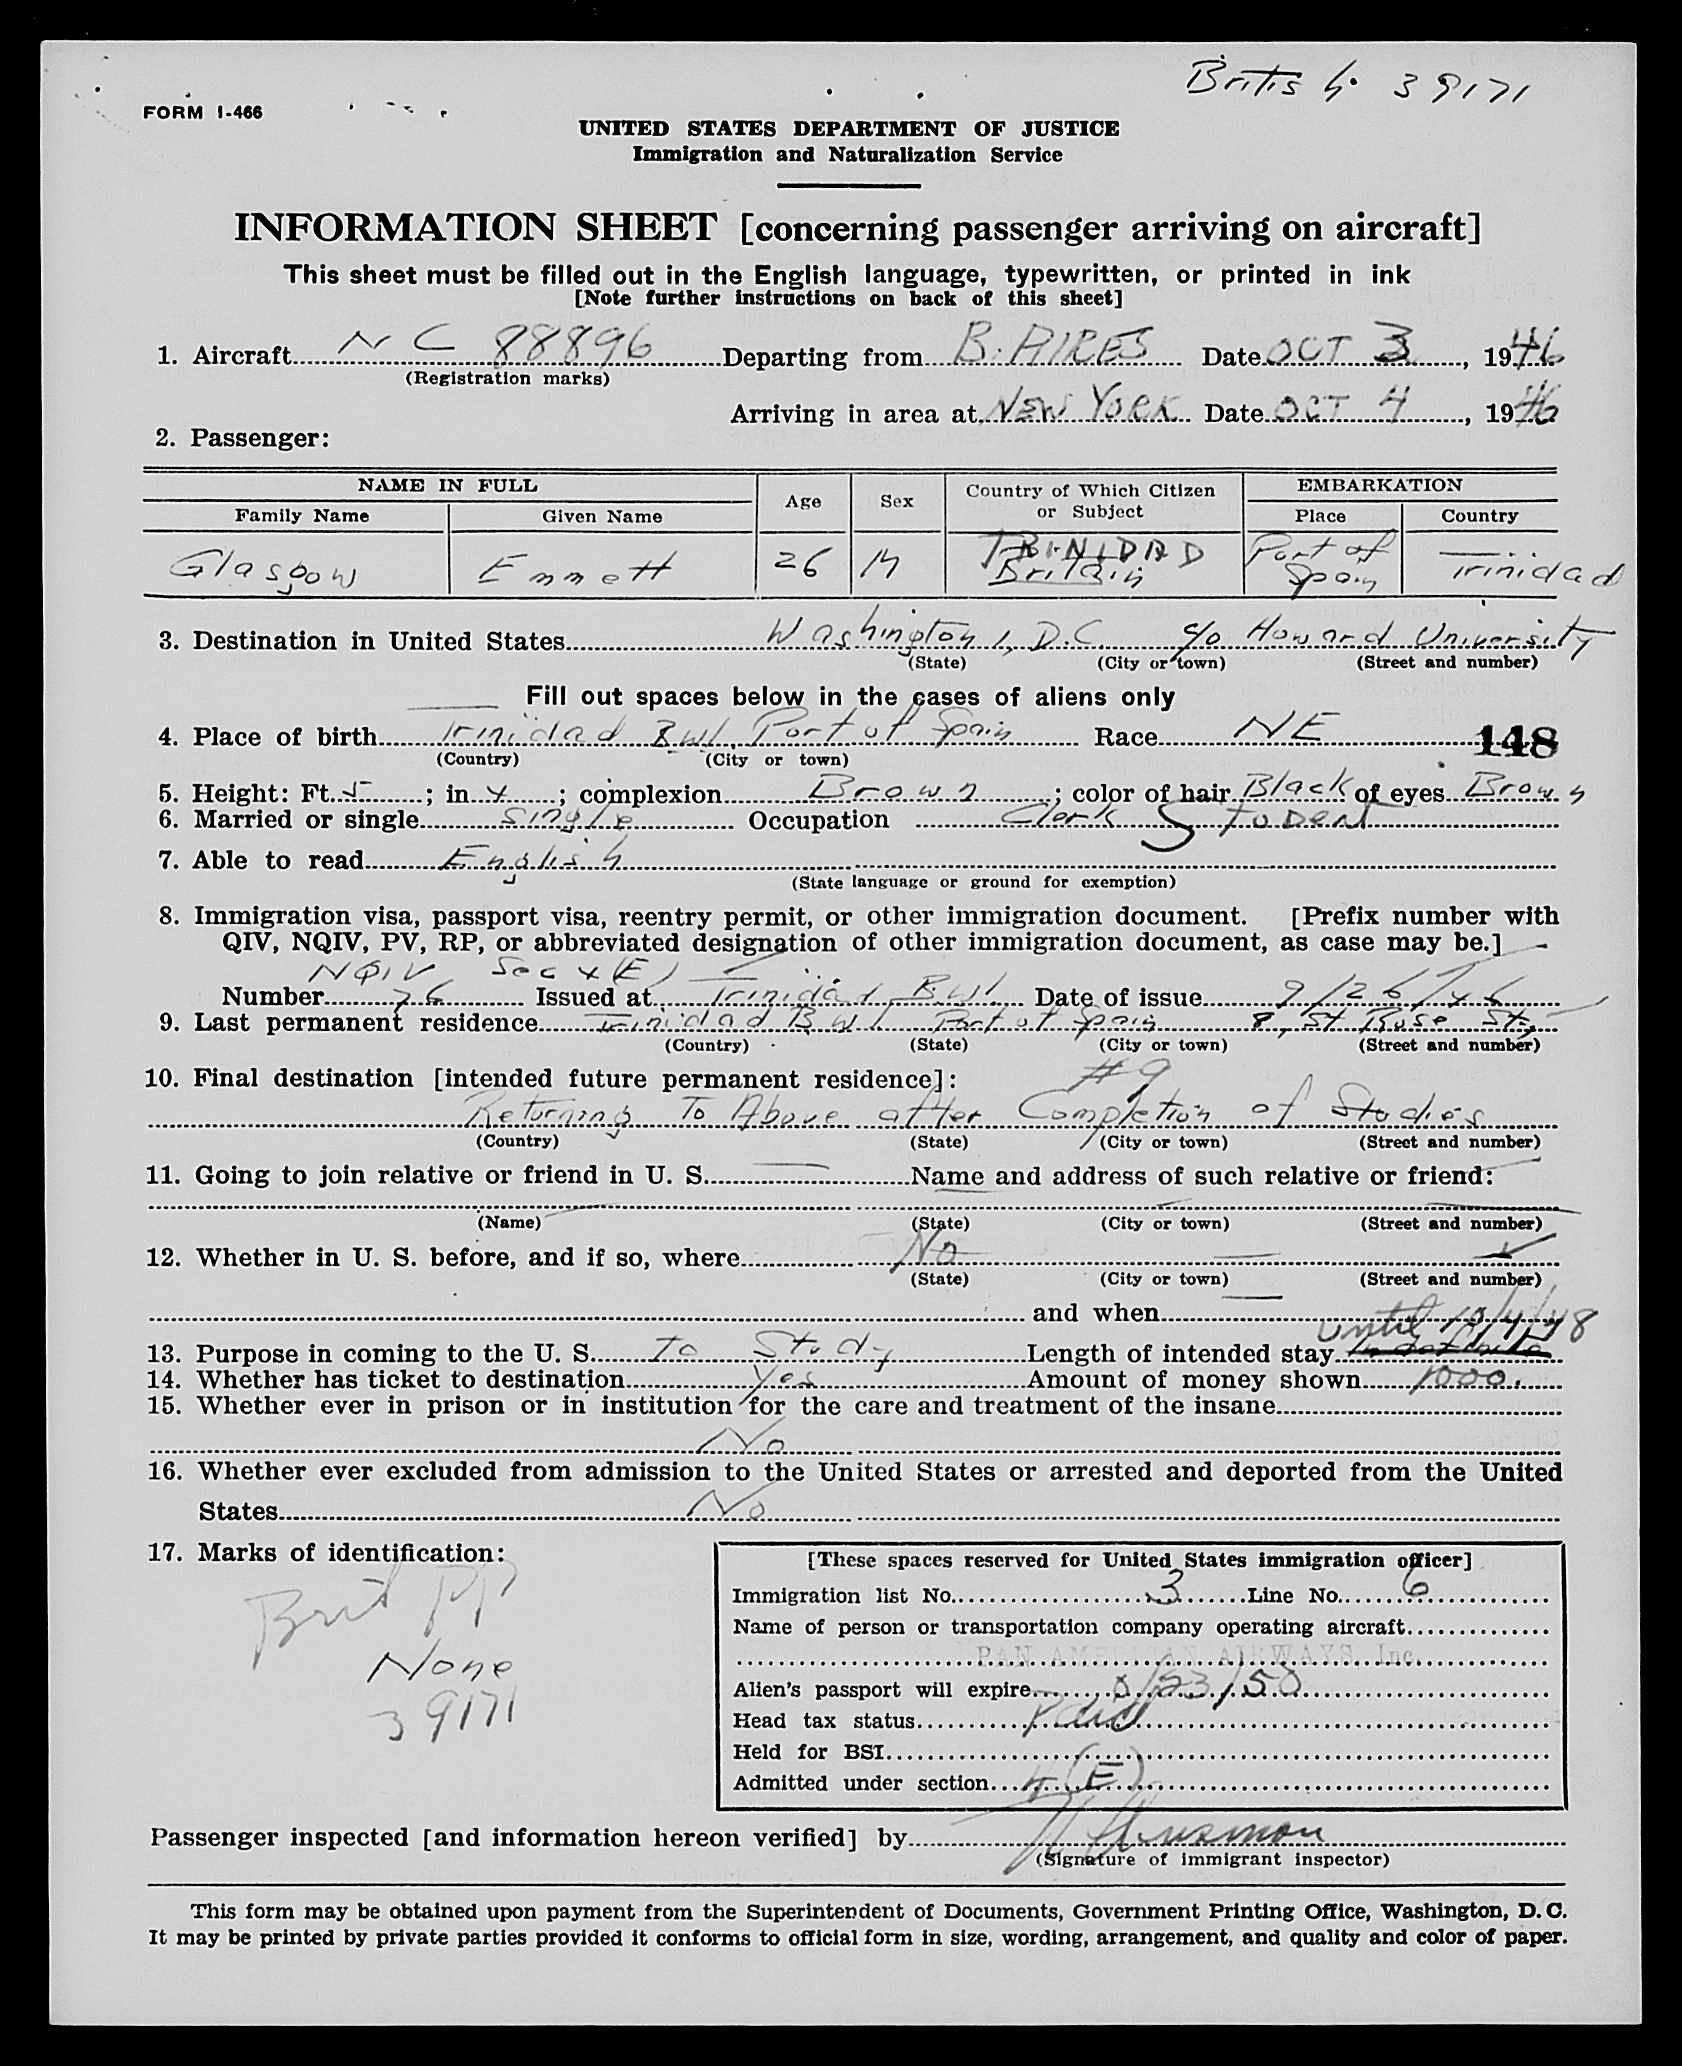 British 39171
FORM I-466
UNITED STATES DEPARTMENT OF JUSTICE
Immigration and Naturalization Service
INFORMATION SHEET [concerning passenger arriving on aircraft]
This sheet must be filled out in the English language, typewritten, or printed in ink
[Note further instructions on back of this sheet]
1. Aircraft NC 88896 Departing from B. AIRES Date OCT 3, 1946
(Registration marks)
Arriving in area at NEW YORK Date OCT 4, 1946
2. Passenger:
NAME IN FULL Age Sex Country of Which Citizen or Subject EMBARKATION
Family Name Given Name Place Country
Glasgow Emmett 26 M TRINIDAD Britain Port of Spain Trinidad
3. Destination in United States Washington 1, D.C. c/o Howard University
(State) (City or town) (Street and number)
Fill out spaces below in the cases of aliens only
4. Place of birth Trinidad BWI, Port of Spain Race NE 148
(Country) (City or town)
5. Height: Ft. 5; in. 4; complexion Brown; color of hair Black of eyes Brown
6. Married or single Single Occupation Clerk STUDENT
7. Able to read English
(State language or ground for exemption)
8. Immigration visa, passport visa, reentry permit, or other immigration document. [Prefix number with
QIV, NQIV, PV, RP, or abbreviated designation of other immigration document, as case may be.]
NQIV Sec 4(E)
Number 76 Issued at Trinidad, BWI Date of issue 9/26/46
9. Last permanent residence Trinidad BWI Port of Spain 8, St Rose St,
(Country) (State) (City or town) (Street and number)
10. Final destination [intended future permanent residence]: #9
Returning To Above after Completion of Studies
(Country) (State) (City or town) (Street and number)
11. Going to join relative or friend in U. S. — Name and address of such relative or friend:
(Name) (State) (City or town) (Street and number)
12. Whether in U. S. before, and if so, where No
(State) (City or town) (Street and number)
and when
13. Purpose in coming to the U. S. To Study Length of intended stay Indefinite until 10/4/48
14. Whether has ticket to destination Yes Amount of money shown 1000.
15. Whether ever in prison or in institution for the care and treatment of the insane
No
16. Whether ever excluded from admission to the United States or arrested and deported from the United
States No
17. Marks of identification:
Brit PP
None
39171
[These spaces reserved for United States immigration officer]
Immigration list No. 3 Line No. 6
Name of person or transportation company operating aircraft
PAN AMERICAN AIRWAYS, Inc.
Alien's passport will expire /23/50
Head tax status Paid
Held for BSI
Admitted under section 4(E)
Passenger inspected [and information hereon verified] by
(Signature of immigrant inspector)
This form may be obtained upon payment from the Superintendent of Documents, Government Printing Office, Washington, D. C.
It may be printed by private parties provided it conforms to official form in size, wording, arrangement, and quality and color of paper.